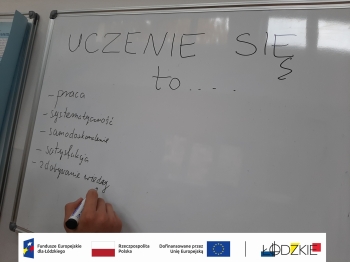 UCZENIE SIĘ
to....
- praca
- systematyczność
- samodoskonalenie
- satysfakcja
- zdobywanie wiedzy
Fundusze Europejskie
dla Łódzkiego
Rzeczpospolita
Polska
Dofinansowane przez
Unię Europejską
ŁÓDZKIE